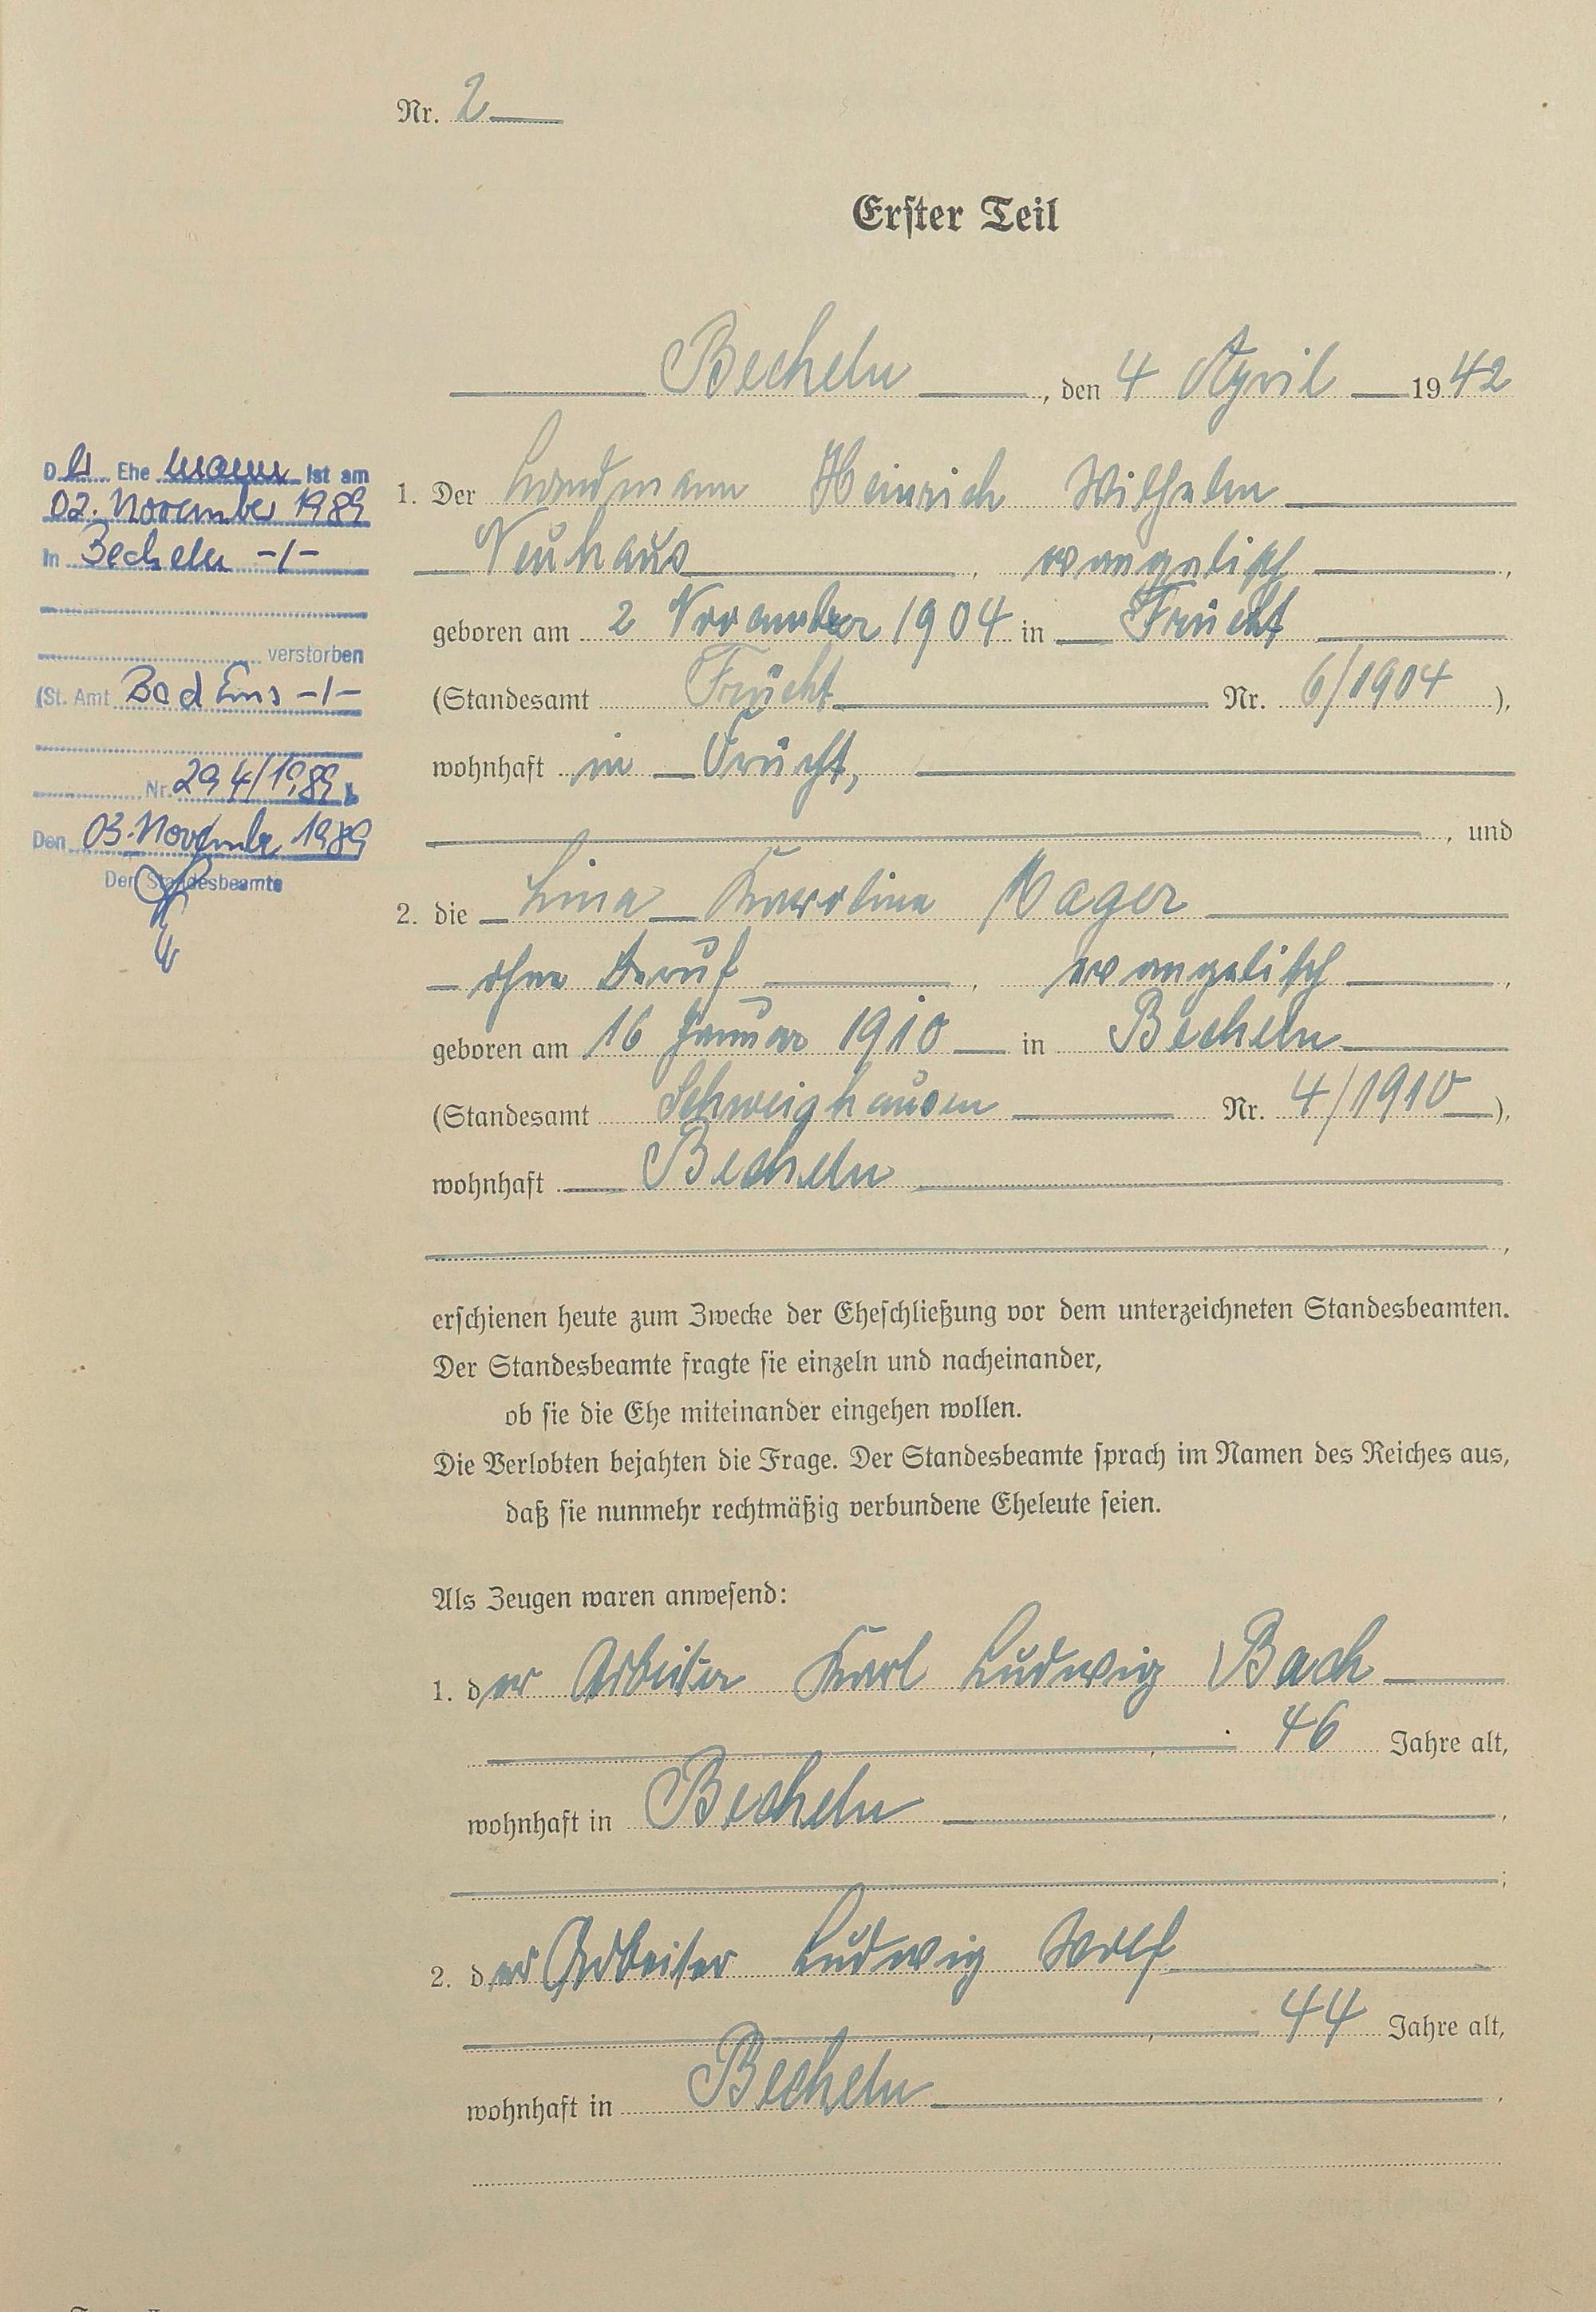 Nr. 2
Erster Teil
Becheln, den 4 April 1942
1. Der Landmann Heinrich Wilhelm
Neuhaus, evangelisch,
geboren am 2 November 1904 in Frücht
(Standesamt Frücht Nr. 6/1904),
wohnhaft in Frücht,
, und
2. die Lina Karoline Mager
ohne Beruf, evangelisch,
geboren am 16 Januar 1910 in Becheln
(Standesamt Schweighausen Nr. 4/1910),
wohnhaft Becheln
,
erschienen heute zum Zwecke der Eheschließung vor dem unterzeichneten Standesbeamten.
Der Standesbeamte fragte sie einzeln und nacheinander,
ob sie die Ehe miteinander eingehen wollen.
Die Verlobten bejahten die Frage. Der Standesbeamte sprach im Namen des Reiches aus,
daß sie nunmehr rechtmäßig verbundene Eheleute seien.
Als Zeugen waren anwesend:
1. der Arbeiter Karl Ludwig Bach
, 46 Jahre alt,
wohnhaft in Becheln,
;
2. der Arbeiter Ludwig Wolf
, 44 Jahre alt,
wohnhaft in Becheln,
Der Ehemann ist am
02. November 1989
in Becheln -/-
verstorben
(St. Amt Bad Ems -/-
Nr. 294/1989)
Den 03. November 1989
Der Standesbeamte